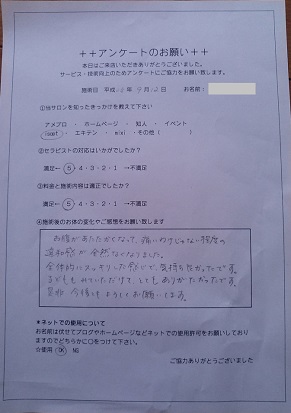 ++アンケートのお願い++
本日はご来店いただきありがとうございました。
サービス・技術向上のためアンケートにご協力をお願い致します。
施術日 平成 年 9月12日 お名前:
①当サロンを知ったきっかけを教えて下さい
アメブロ ・ ホームページ ・ 知人 ・ イベント
・ エキテン ・ mixi ・ その他( )
②セラピストの対応はいかがでしたか?
満足← 5・4・3・2・1 →不満足
③料金と施術内容は適正でしたか?
満足← 5・4・3・2・1 →不満足
④施術後のお体の変化やご感想をお願い致します
お腹があたたかくなって、痛いわけじゃない程度の
違和感が全然なくなりました。
全体的にスッキリした感じで、気持ち良かったです。
子どももみていただけて、とてもありがたかったです。
是非 今後もよろしくお願いします。
*ネットでの使用について
お名前は伏せてブログやホームページなどネットでの使用許可をお願いしており
ますのでどちらかに〇をつけて下さい。
☆使用 OK NG
ご協力ありがとうございました